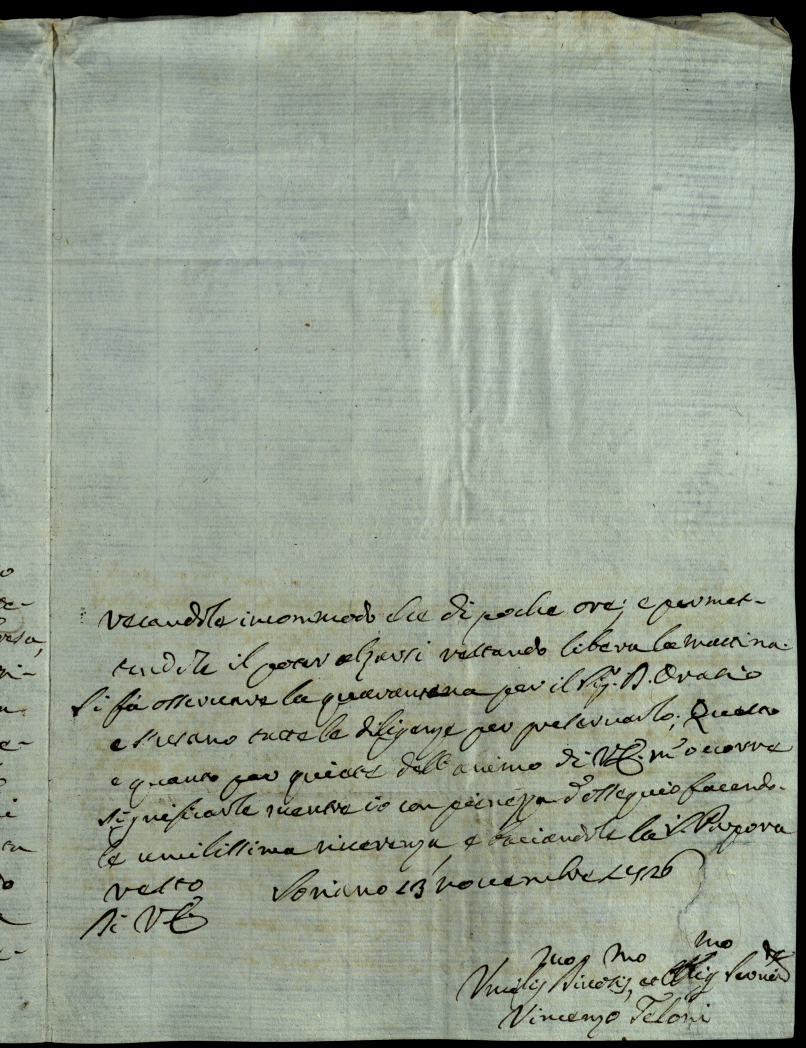 recandole incommodo che di poche ore; e permet-
tendole il poter alzarsi restando libera la mattina.
Si fà osservare la quarantena per il Sig.r D. Orazio
e s'usano tutte le diligenze per preservarlo; Questo
e quanto per quiete dell'animo di V.E. m'occorre
significarle mentre io con pienezza d'ossequio facendo-
le umilissima riverenza e baciandole la S. Porpora
resto Soriano 13 novembre 1726
Di V.E.
mo mo mo re
Umilis Divotis, ed Oblig Servid
Vincenzo Teloni